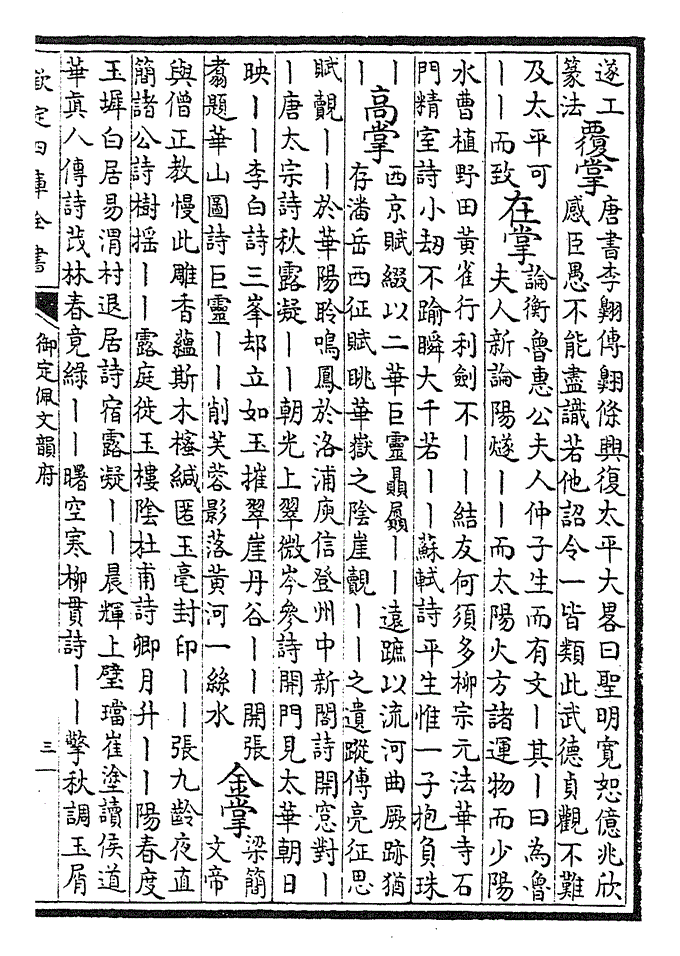 遂工
篆法
覆掌
唐書李翺傳翺條興復太平大畧曰聖明寛恕億兆欣
感臣愚不能盡識若他詔令一皆類此武德貞觀不難
及太平可
丨丨而致
在掌
論衡魯惠公夫人仲子生而有文丨其丨曰為魯
夫人新論陽燧丨丨而太陽火方諸運物而少陽
水曹植野田黄雀行利劍不丨丨結友何須多柳宗元法華寺石
門精室詩小刼不踰瞬大千若丨丨蘇軾詩平生惟一子抱負珠
丨
丨
高掌
西京賦綴以二華巨靈贔屭丨丨遠蹠以流河曲厥跡猶
存潘岳西征賦眺華嶽之隂崖覿丨丨之遺蹤傅亮征思
賦覿丨丨於華陽聆鳴鳳於洛浦庾信登州中新閣詩開窓對丨
丨唐太宗詩秋露凝丨丨朝光上翠微岑參詩開門見太華朝日
映丨丨李白詩三峯却立如玉摧翠崖丹谷丨丨開張
翥題華山圖詩巨靈丨丨削芙蓉影落黄河一絲水
金掌
梁簡
文帝
與僧正教慢此雕香藴斯木㯓緘匿玉毫封印丨丨張九齡夜直
簡諸公詩樹摇丨丨露庭徙玉樓隂杜甫詩卿月升丨丨陽春度
玉墀白居易渭村退居詩宿露凝丨丨晨輝上璧璫崔塗讀侯道
華真人傳詩茂林春竟緑丨丨曙空寒柳貫詩丨丨擎秋調玉屑
欽定四庫全書
御定佩文韻府
三